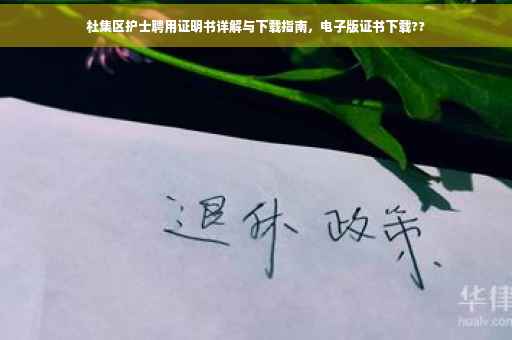 社集区护士聘用证明书详解与下载指南，电子版证书下载??
退休 政策
华律
hualv.com